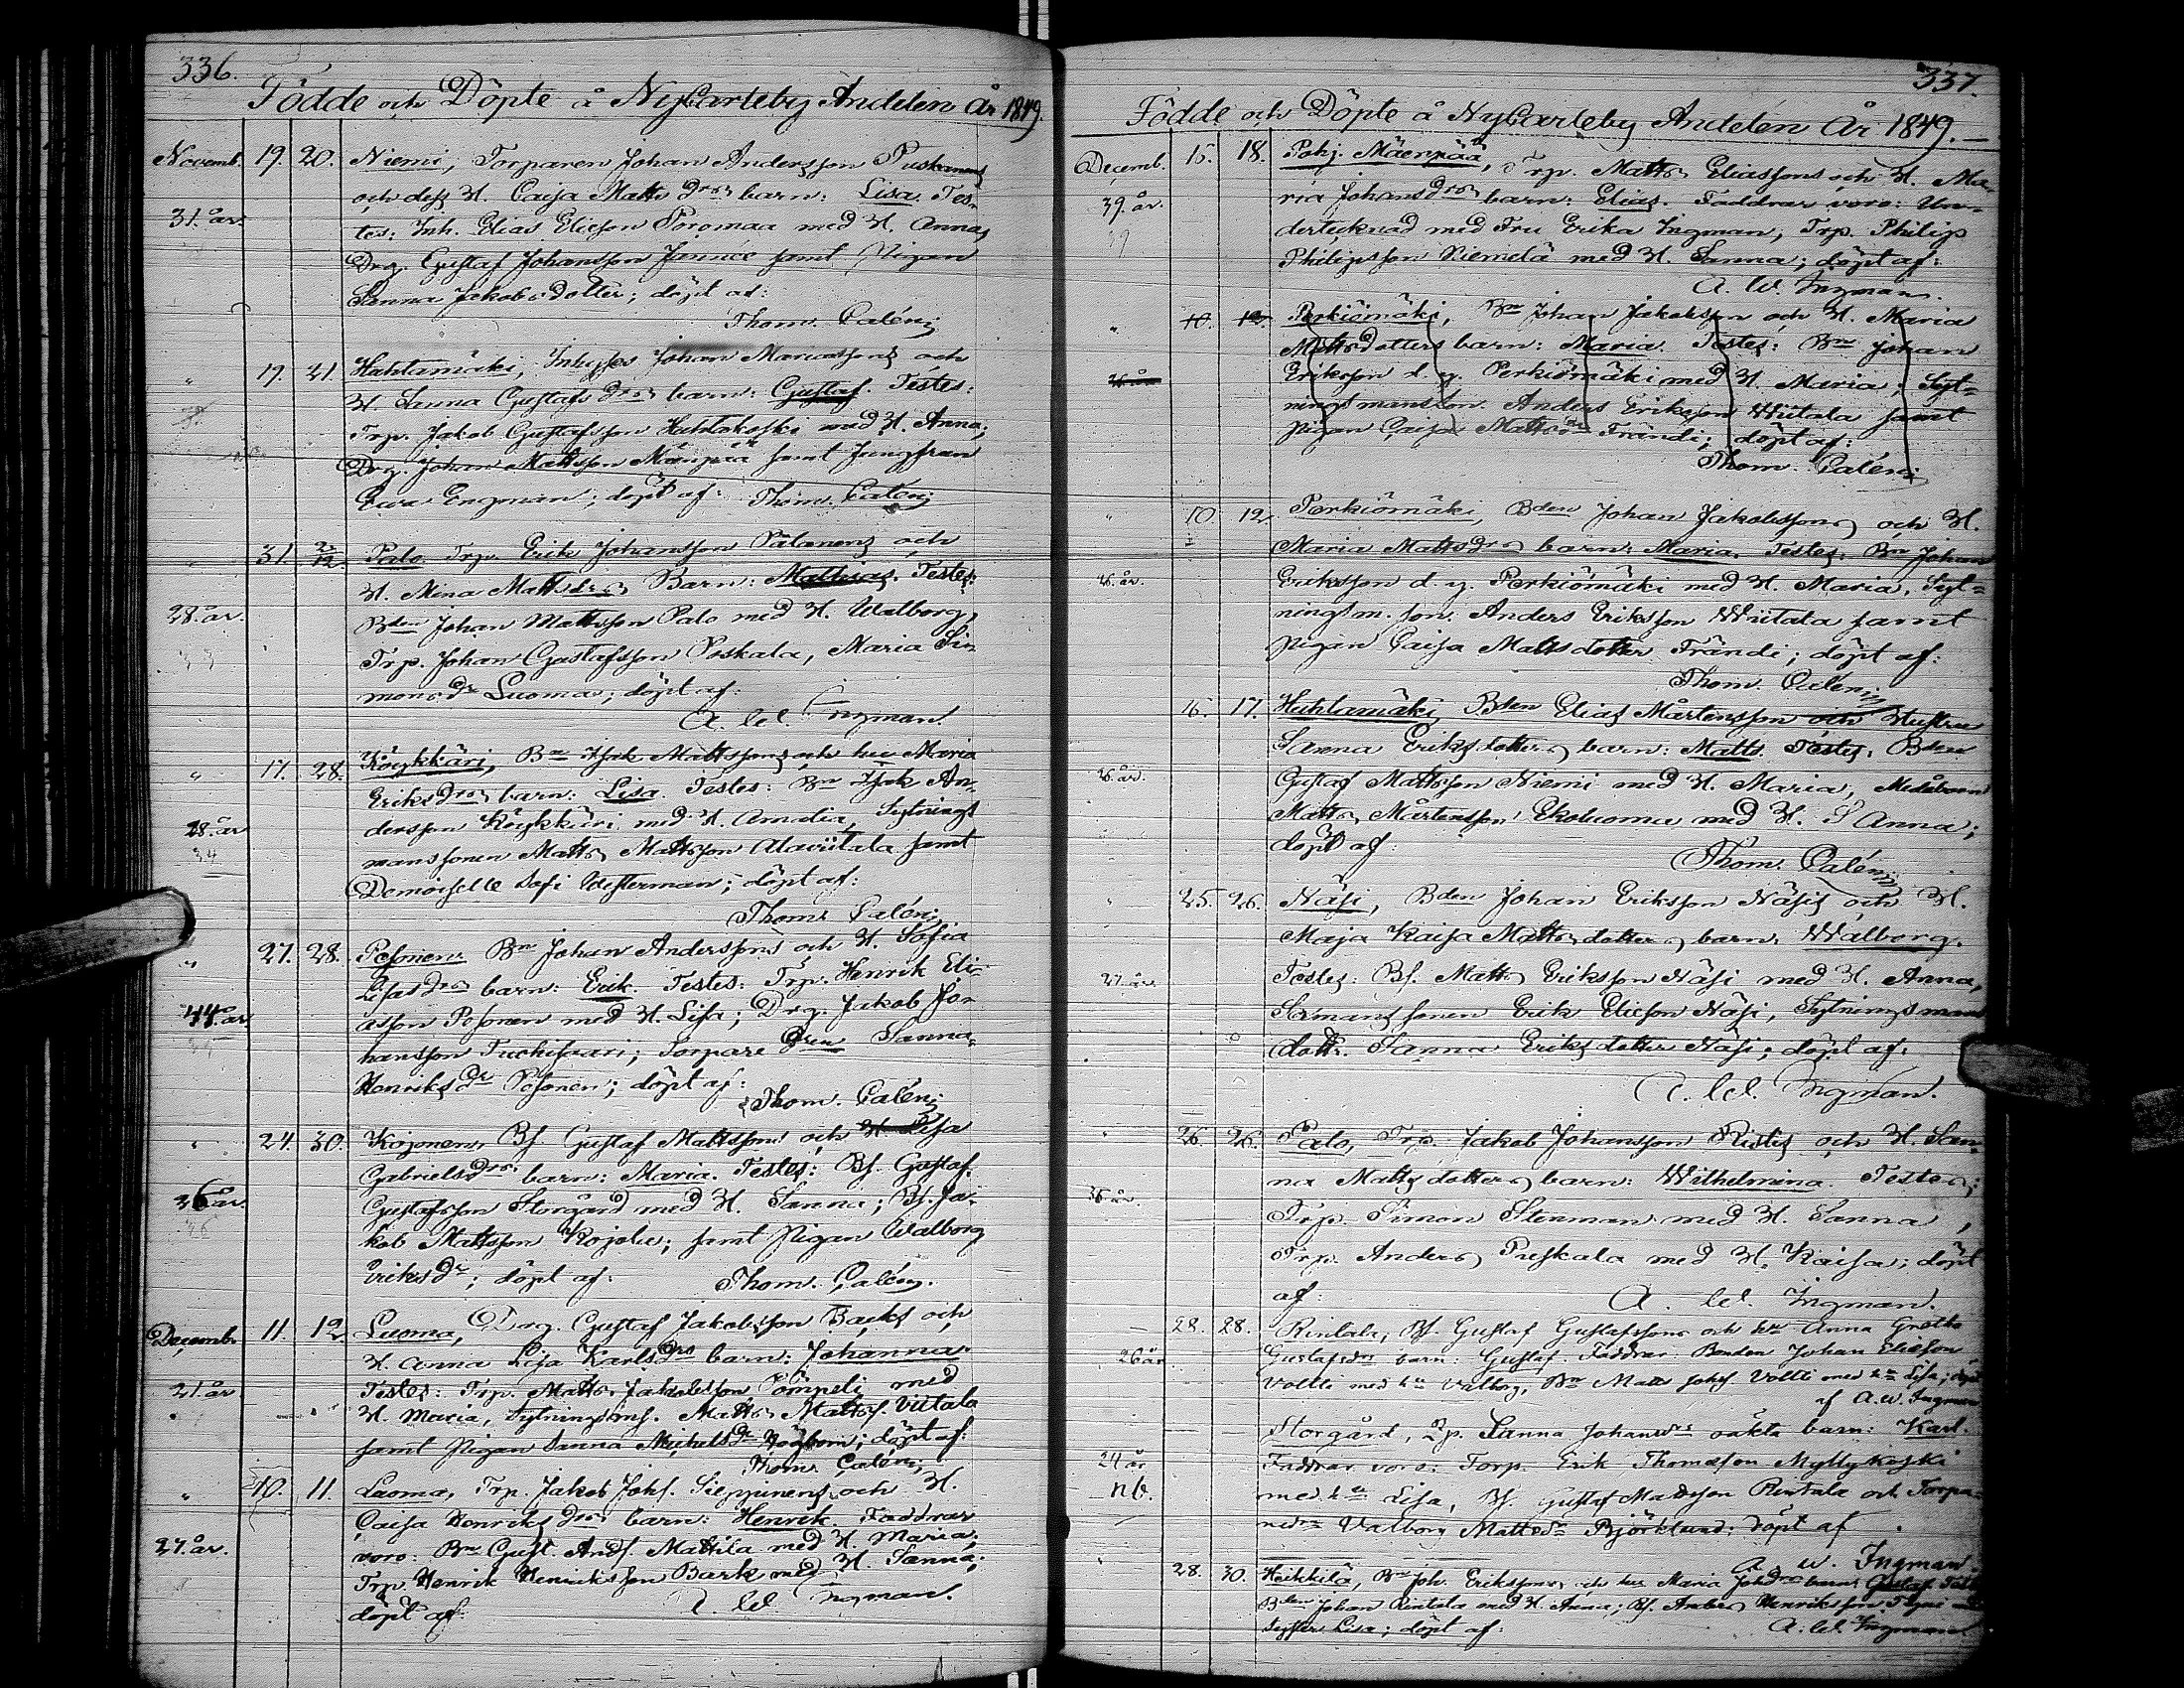 336.
Födde och Döpte å NyCarleby Andelen År 1849.
Novemb. 19. 20. Niemi, Torparen Johan Andersson
och dess H. Caisa Matts drs barn: Lisa. Tes-
31. år. tes: Inh. Elias Elieson Poromaa med H. Anna,
Drg. Gustaf Johansson samt Pigan
Sanna Jakobsdotter; döpt af:
Thom. Calén;
" 19. 21. Hahtamäki, Inhyses Johan Mariassons och
H. Sanna Gustafs drs barn: Gustaf. Testes:
Trp. Jakob Gustafsson Huhtakoski med H. Anna;
Drg. Johan Mattsson Mänpää samt Jungfrun
Engman; döpt af: Thom. Calén;
31. 2/12. Palo Trp. Erik Johansson Palanens och
H. Mina Mattsdrs Barn: Mathias. Testes:
28. år. Bden Johan Mattsson Palo med H. Walborg,
Trp. Johan Gustafsson Poskala, Maria Si-
monsdr Luoma; döpt af:
A. W. Ingman.
" 17. 28. Köykkäri, Bn Isak Mattssons och hu Maria
Eriksdrs barn: Lisa. Testes: Bn Isak An-
28. år dersson Köykkäri med H. Amalia, Sytnings
34 manssonen Matts Mattsson Alaviitala samt
Demoiselle Sofi Westerman; döpt af:
Thom. Calén;
" 27. 28. Pesonen Bn Johan Anderssons och H. Sofia
Lisas drs barn: Erik. Testes: Trp. Henrik Eli-
44. år. asson Pesonen med H. Lisa; Drg. Jakob Jo-
hansson Tuohisaari; Torpare dren Sanna
Henriks dr Pesonen; döpt af:
Thom. Calén;
" 24. 30. Kojonen, Bs Gustaf Mattssons och H. Lisa
Gabrielsdrs barn: Maria. Testes: Bs. Gustaf
36 år. Gustafsson Storgård med H. Sanna; Bs. Ja-
kob Mattsson Kojola; samt Pigan Walborg
Eriksdr; döpt af: Thom. Calén.
Decemb. 11. 12 Luoma, Drg. Gustaf Jakobsson Backs och
H. Anna Lisa Karlsdrs barn: Johanna.
21. år. Testes: Trp. Matts JakobssonÖmpeli med
H. Maria, Sytningsms. Matts Matts. Viitala
samt Pigan Sanna Michelsdr; döpt af:
Thom. Calén;
" 10. 11. Luoma, Trp. Jakob Johs. och H.
Caisa Henriks drs barn: Henrik. Faddrar
27. år. voro: Bn Gust. Ands. Mattila med H. Maria;
Trp. Henrik Henriksson Bark med H. Sanna;
döpt af A. W. Ingman.
337.
Födde och Döpte å NyCarleby Andelen År 1849.
Decemb. 15. 18. Pohj. Mäenpää, Trp. Matts Eliassons och H. Ma-
39. år. ria Johansdrs barn: Elias. Faddrar voro: Un-
39 dertecknad med Fru Erika Ingman, Trp. Philip
Philipsson Niemelä med H. Sanna; döpt af:
A. W. Ingman.
" 10. 12. Perkiömäki, Bn Johan Jakobsson och H. Maria
Mattsdotters barn: Maria. Testes: Bn Johan
Eriksson d. y. Perkiömäki med H. Maria; Syt-
ningsmansson. Anders Eriksson Wiitala samt
Pigan Caisa Mattsdr Frändi; döpt af:
Thom. Calén;
" 10. 12. Perkiömäki, Bden Johan Jakobssons och H.
Maria Mattsdrs barn: Maria. Testes: Bn Johan
26. år. Eriksson d. y. Perkiömäki med H. Maria, Syt-
ningsm. son. Anders Eriksson Wiitala samt
Pigan Caisa Mattsdotter Frändi; döpt af:
Thom. Calén;
16. 17. Huhtamäki, Bden Elias Mårtensson och Hustru
Sanna Eriksdotters barn: Matts. Testes: Bden
26. år. Gustaf Mattsson Niemi med H. Maria,
Matts Mårtensson Ekoluoma med H. Sanna;
döpt af:
Thom. Calén;
" 25. 26. Näsi, Bden Johan Eriksson Näsis och H.
Maja Kaisa Mattsdotters barn: Walborg.
27. år. Testes: Bs. Matts Eriksson Näsi med H. Anna,
Sexmanssonen Erik Elieson Näsi, Sytningsmans
dottr. Sanna Eriksdotter Näsi; döpt af:
A. W. Ingman.
" 26. 26. Palo, Trp. Jakob Johansson Ristis och H. San-
na Mattsdotters barn: Wilhelmina. Testes;
35 år. Trp. Simon Stenman med H. Sanna,
Trp. Anders Puskala med H. Kaisa; döpt
af: A. W. Ingman.
28. 28. Rintala, Bs. Gustaf Gustafssons och hu Anna Greta
26 år Gustafsdrs barn: Gustaf. Faddrar Bonden Johan Elieson
Voltti med hu Valborg, Bn Matts Johs. Voltti med hu Lisa; döpt
af A. W. Ingman
Storgård, Pp. Sanna Johansdrs oäkta barn: Karl.
24 år Faddrar voro: Torp. Erik Thomasson Myllykoski
nb. med hu Lisa, Bs. Gustaf Mattsson Rintala och Torpa-
Valborg Mattsdr Björklund; döpt af
A. W. Ingman
28. 30. Heikkilä, Bn Joh. Erikssons och hus Maria Johdrs barn Gustaf. Test
Bden Johan Rintala med H. Anna; Bs. Anders Henriksson
syster Lisa; döpt af: A. W. Ingman